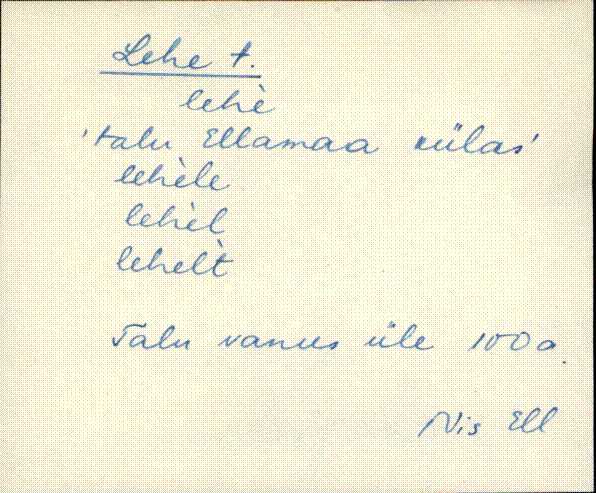 Lehe t.
lehè
'talu Ellamaa külas'
lehèle
lehèl
lehelt̀
Talu vanus üle 100 a.
Nis Ell